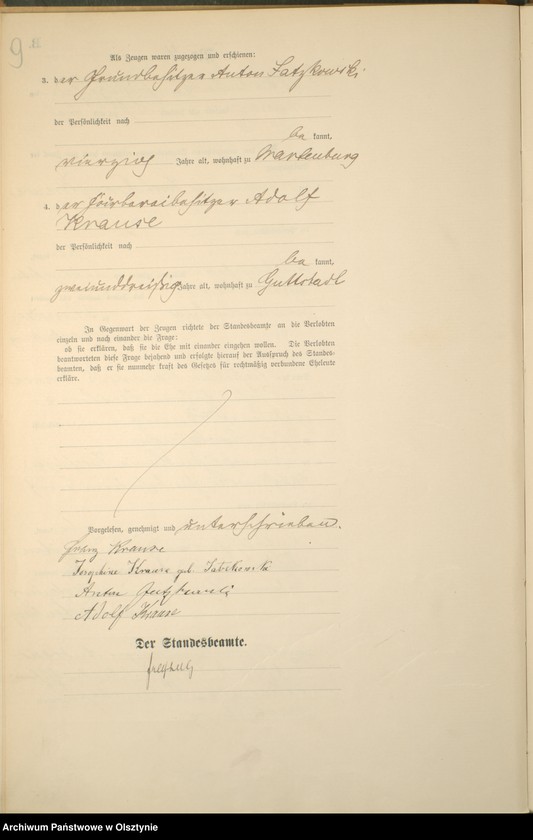 9
Als Zeugen waren zugezogen und erschienen:
3. der Grundbesitzer Anton Satzkowski
der Persönlichkeit nach
be kannt,
vierzig Jahre alt, wohnhaft zu Wartenburg
4. der Färbereibesitzer Adolf
Krause
der Persönlichkeit nach
be kannt,
zweiunddreißig Jahre alt, wohnhaft zu Guttstadt
In Gegenwart der Zeugen richtete der Standesbeamte an die Verlobten
einzeln und nach einander die Frage:
ob sie erklären, daß sie die Ehe mit einander eingehen wollen. Die Verlobten
beantworteten diese Frage bejahend und erfolgte hierauf der Ausspruch des Standes-
beamten, daß er sie nunmehr kraft des Gesetzes für rechtmäßig verbundene Eheleute
erkläre.
Vorgelesen, genehmigt und unterschrieben.
Franz Krause
Josephine Krause geb Satzkowski
Anton Satzkowski
Adolf Krause
Der Standesbeamte.
Archiwum Państwowe w Olsztynie